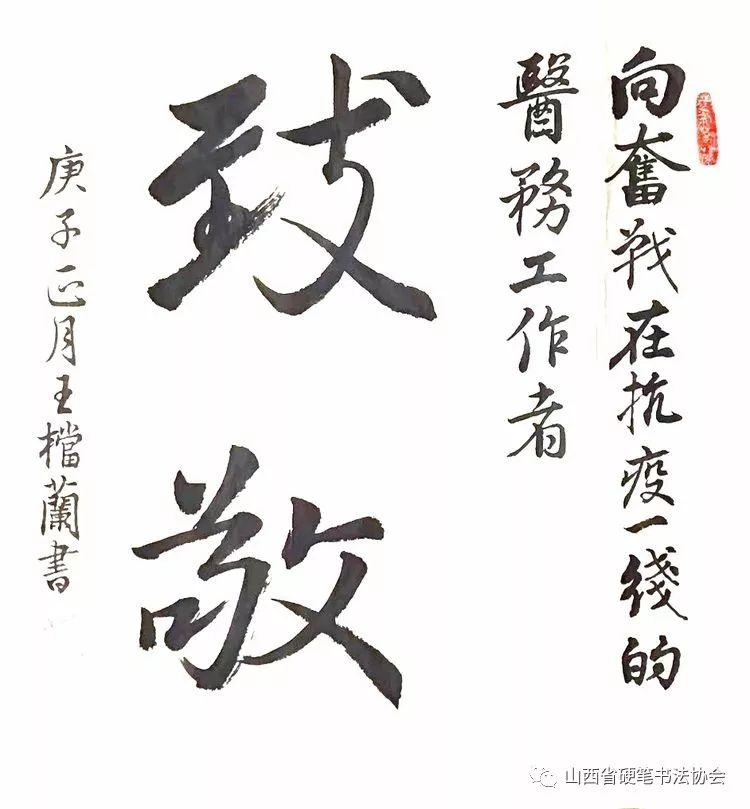 向奮戰在抗疫一綫的
醫務工作者
致
敬
庚子正月王檔蘭書
山西省硬笔书法协会